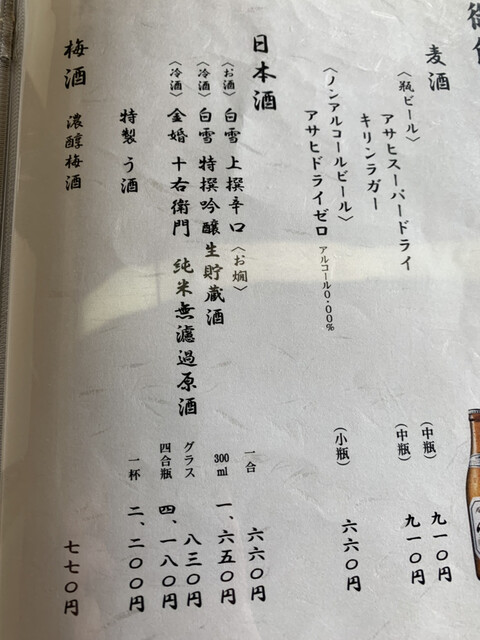 麦酒
〈瓶ビール〉
アサヒスーパードライ (中瓶) 九一〇円
キリンラガー (中瓶) 九一〇円
〈ノンアルコールビール〉
アサヒドライゼロ アルコール0.00% (小瓶) 六六〇円
日本酒
〈お酒〉 白雪 上撰辛口 〈お燗〉 一合 六六〇円
〈冷酒〉 白雪 特撰吟醸生貯蔵酒 300ml 一、六五〇円
〈冷酒〉 金婚 十右衛門 純米無濾過原酒 グラス 八三〇円
四合瓶 四、一八〇円
特製 う酒 一杯 二、二〇〇円
梅酒 濃醇梅酒 七七〇円